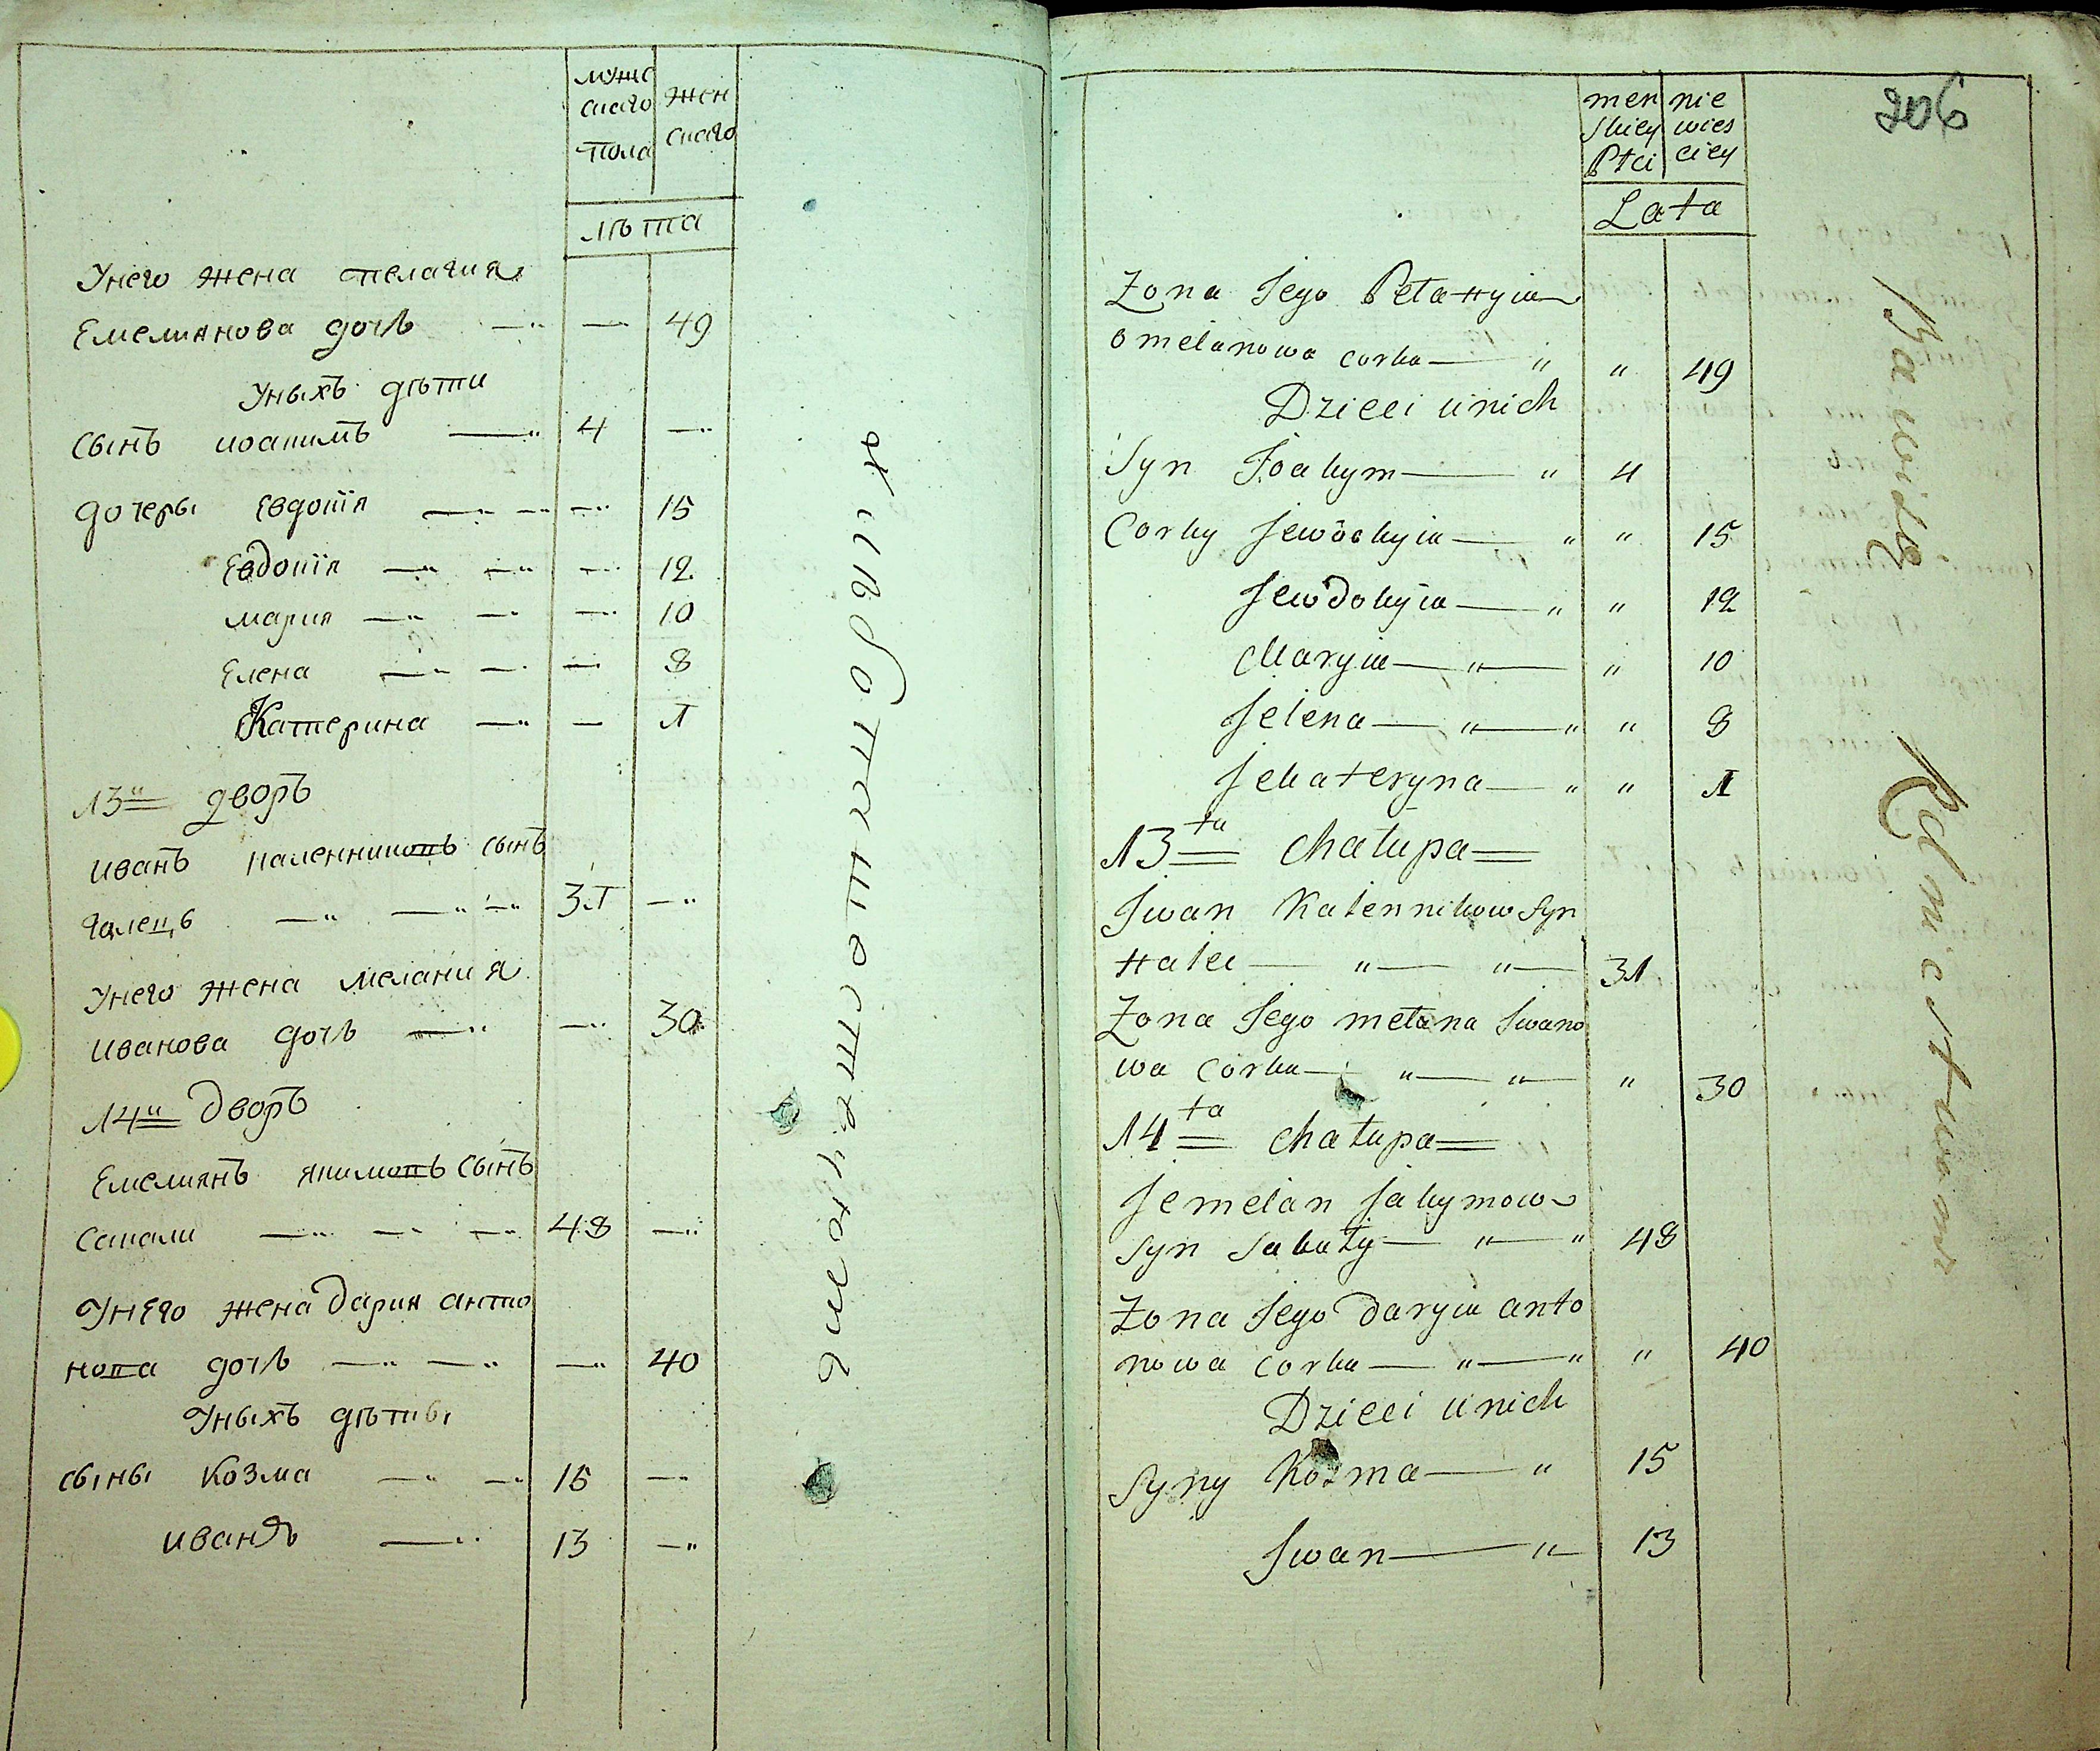 мужс
скаго
пола
жен
скаго
лѣта
Унего жена пелагия
Емелиянова дочь — — 49
Уныхъ дѣти
Сынъ иоакимъ — 4 —
дочеры Евдокiя — — — 15
Евдокiя — — — 12
мария — — — 10
Елена — — — 8
Катерина — — 1
13й дворъ
иванъ каленниковъ сынъ
галецъ — — — 31 —
Унего жена мелания
иванова дочь — — 30
14й дворъ
Емелиянъ якимовъ сынъ
Сакали — — — 48 —
Унего жена дария анто
нова дочь — — — 40
Уныхъ дѣты
сыны козма — — 15 —
иванъ — 13 —
206
men
skiey
Płci
nie
wies
ciey
Lata
Żona Jego Pelahyia
omelanowa corka — " " 49
Dzieci u nich
Syn Joakym — " 4
Corky Jewdokyia — " " 15
Jewdokyia — " " 12
Maryia — " — " 10
Jelena — " — " " 8
Jekateryna — " " 1
13ta chałupa
Iwan Kalennikow Syn
Halec — " — " — 31
Żona Jego melana Iwano
wa corka — " — " — " 30
14ta chałupa
Jemelan Jakymow
Syn Sakały — " — " 48
Żona Jego daryia anto
nowa corka — " — " " 40
Dzieci u nich
Syny Kozma — " 15
Iwan — " — 13